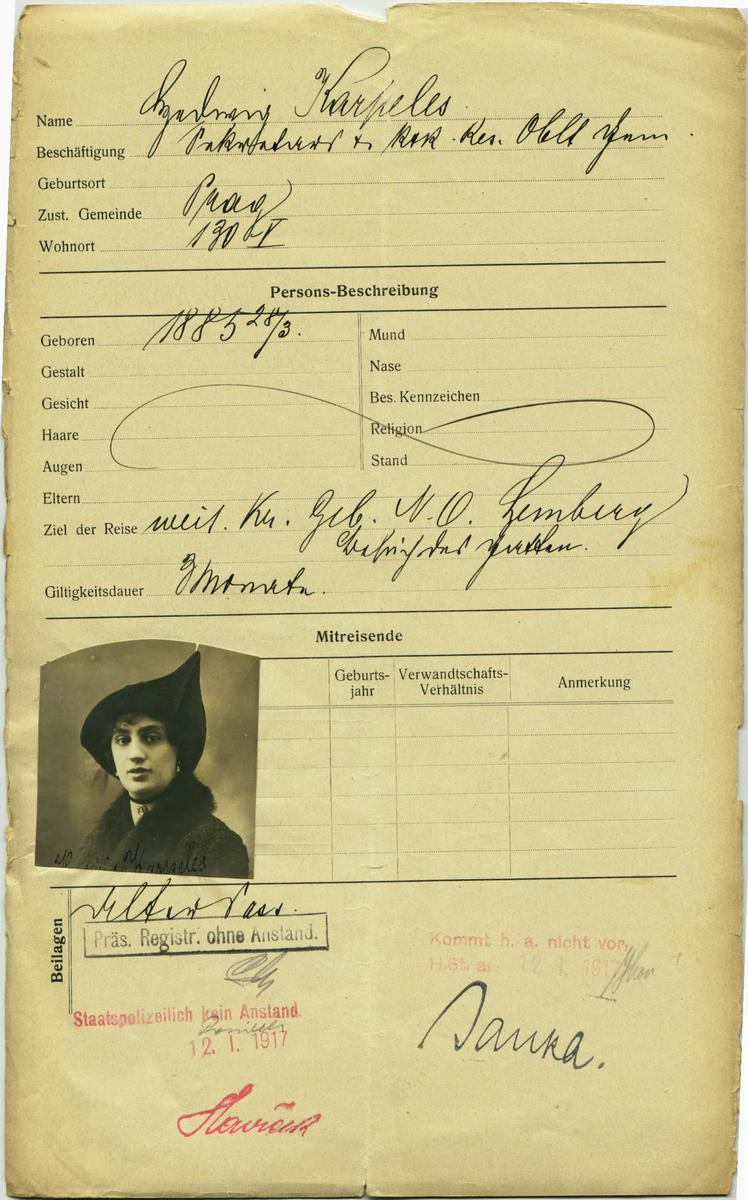 Name Hedwig Karpeles.
Beschäftigung Sekretärs k.u.k. Res. Oblt
Geburtsort
Zust. Gemeinde Prag
Wohnort 130 V
Persons-Beschreibung
Geboren 1885 28/3. Mund
Gestalt Nase
Gesicht Bes. Kennzeichen
Haare Religion
Augen Stand
Eltern
Ziel der Reise weit. Kr. Geb. N.O. Lemberg
Besuch des Gatten.
Giltigkeitsdauer 3 Monate.
Mitreisende
Geburts- Verwandtschafts- Anmerkung
jahr Verhältnis
Karpeles
Beilagen Alter Pass.
Präs. Registr. ohne Anstand.
Kommt h. a. nicht vor,
H.St. a: 12. I. 1917
Staatspolizeilich kein Anstand.
12. I. 1917